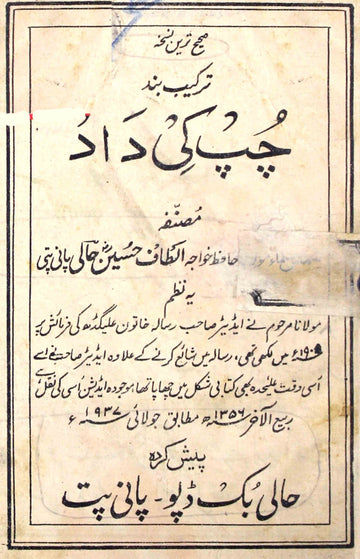 صحیح ترین نسخہ
ترکیب بند
چُپ کی داد
مصنّفہ
حافظ خواجہ الطاف حسین حالی پانی پتی
یہ نظم
مولانا مرحوم نے ایڈیٹر صاحب رسالہ خاتون علیگڈھ کی فرمائش پر
۱۹۰۵ء میں لکھی تھی، رسالہ میں شائع کرنے کے علاوہ ایڈیٹر صاحب نے اسے
اُسی وقت علیحدہ بھی کتابی شکل میں چھاپا تھا موجودہ ایڈیشن اُسی کی نقل ہے
ربیع الآخر ۱۳۵۶ھ مطابق جولائی ۱۹۳۷ء
پیش کردہ
حالی بُک ڈپو - پانی پت